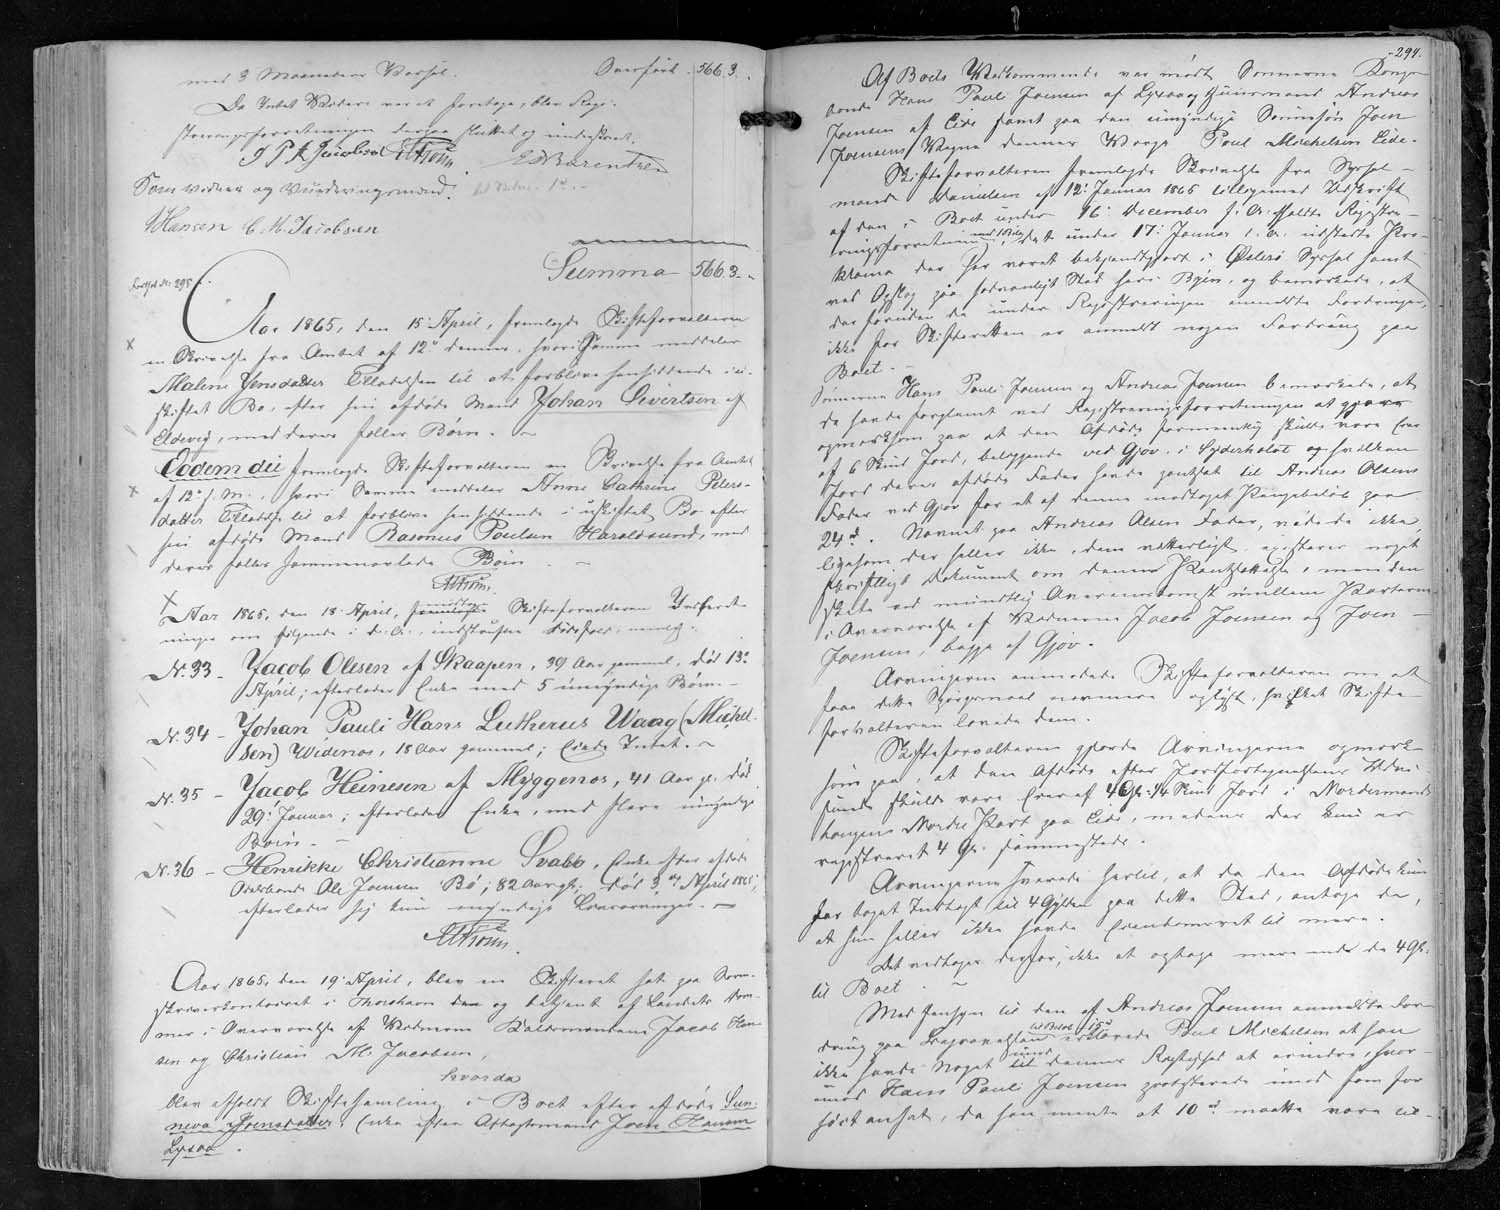 med 3 Maaneders Varsel. Overført 566. 3.
Da Intet Videre var at foretage, blev Regi-
streringsforretningen derpaa sluttet og underskrevet.
J P A Jacobsen HThom E Barentzen
Som vidner og Vurderingsmænd:
JHansen C. M. Jacobsen
Summa 566. 3. -
Aar 1865, den 15de April, fremlagde Skifteforvalteren
en Skrivelse fra Amtet af 12te dennes, hvori Samme meddeler
Malene Jensdatter Tilladelsen til at forblive hensiddende i u-
skiftet Bo, efter sin afdøde Mand Johan Sivertsen af
Eldevig, med deres fælles Børn. -
Eodem die fremlagde Skifteforvalteren en Skrivelse fra Amtet
af 12te s. M., hvori Samme meddeler Anne Cathrine Peters-
datter Tilladelse til at forblive hensiddende i uskiftet Bo efter
sin afdøde Mand Rasmus Poulsen Haraldsund, med
deres fælles sammenavlede Børn. -
HThom.
Aar 1865, den 18. April, Skifteforvalteren Indberet-
ninger om følgende i d. A. indtrufne Dødsfald, nemlig:
Nr. 33 - Jacob Olesen af Skaapen, 39 Aar gammel, død 13de
April; efterlader Enke med 5 umyndige Børn. -
Nr. 34 - Johan Pauli Hans Lutherus Waag (Michel-
sen) Widenæs, 18 Aar gammel; Eiede Intet. -
Nr. 35 - Jacob Heinesen af Myggenæs, 41 Aar gl. død
29. Januar; efterlader Enke, med flere umyndige
Børn. -
Nr. 36 - Henrikke Christianne Svabo, Enke efter afdøde
Ole Joensen Bø; 82 Aar gl.; død 3. April 1865;
efterlader sig kun myndige Livsarvinger. -
HThom.
Aar 1865, den 19. April, blev en Skifteret sat paa Soren-
skriverkontoret i Thorshavn og betjent af Landets Soren-
i Overværelse af Vidnerne Jacob Han-
sen og Christian M. Jacobsen,
hvorda
blev afholdt Skiftesamling i Boet efter afdøde Sun-
neva Joensdatter, Enke efter Aftægtsmand Joen Hansen
294.
Af Boets Vedkommende var mødt Sønnerne Kongs-
bonde Hans Pauli Joensen af og Huusmand Andreas
Joensen af Eide samt paa den umyndige Sønnesøn Joen
Joensens Vegne dennes Værge Poul Michelsen Eide.
Skifteforvalteren fremlagde Skrivelse fra Syssel-
mand Danielsen af 12. Januar 1865 tilligemed Udskrift
af den i Boet under 16. December f. A. afholdte Registre-
ringsforretning, det under 17. Januar d. A. udstedte Pro-
klama der har været bekjendtgjort i Østerø Syssel samt
ved Opslag paa sædvanligt Sted her i Byen, og bemærkede, at
der foruden de under Registreringen anmeldte Fordringer,
ikke for Skifteretten er anmeldt nogen Fordring paa
Boet. -
Sønnerne Hans Pauli Joensen og Andreas Joensen bemærkede, at
de havde forglemt ved Registreringsforretningen at gjøre
opmærksom paa at den Afdøde formeentlig skulde være Eier
af 6 Skind Jord, beliggende ved Gjov, i og hvilken
Jord deres afdøde Fader havde pantsat til Andreas Olsens
Fader ved Gjov for et af denne modtaget Pengebeløb paa
24 rd. Navnet paa Andreas Olsens Fader, vidste de ikke
ligesom der heller ikke, dem vitterligt, existerer noget
skriftligt Dokument om denne Pantsættelse, men den
skete ved mundtlig Overeenskomst mellem Parterne
i Overværelse af Vidnerne Jacob Joensen og Joen
Joensen, begge af Gjov.
Arvingerne anmodede Skifteforvalteren om at
faae dette Spørgsmaal nærmere oplyst, hvilket Skifte-
forvalteren lovede dem.
Skifteforvalteren gjorde Arvingerne opmærk-
som paa, at den Afdøde efter Jordfortegnelsens Udvi-
sende skulde være Eier af 4 Gl. Skind Jord i Nordermands
haugens Nordre Part paa Eide, medens der kun er
registreret 4 Gl. sammesteds.
Arvingerne svarede hertil, at da den Afdøde kun
har taget Indtægt til 4 Gylden paa dette Sted, antoge de,
at hun heller ikke havde Eiendomsret til mere.
Det vedtoges derfor, ikke at optage mere end de 4 Gl.
til Boet. -
Med Hensyn til den af Andreas Joensen anmeldte For-
dring paa erklærede Poul Michelsen at han
ikke havde Noget imod dennes Rigtighed at erindre, hvor-
imod Hans Pauli Joensen protesterede imod som for
høit ansat, da han meente at 10 rd. maatte være